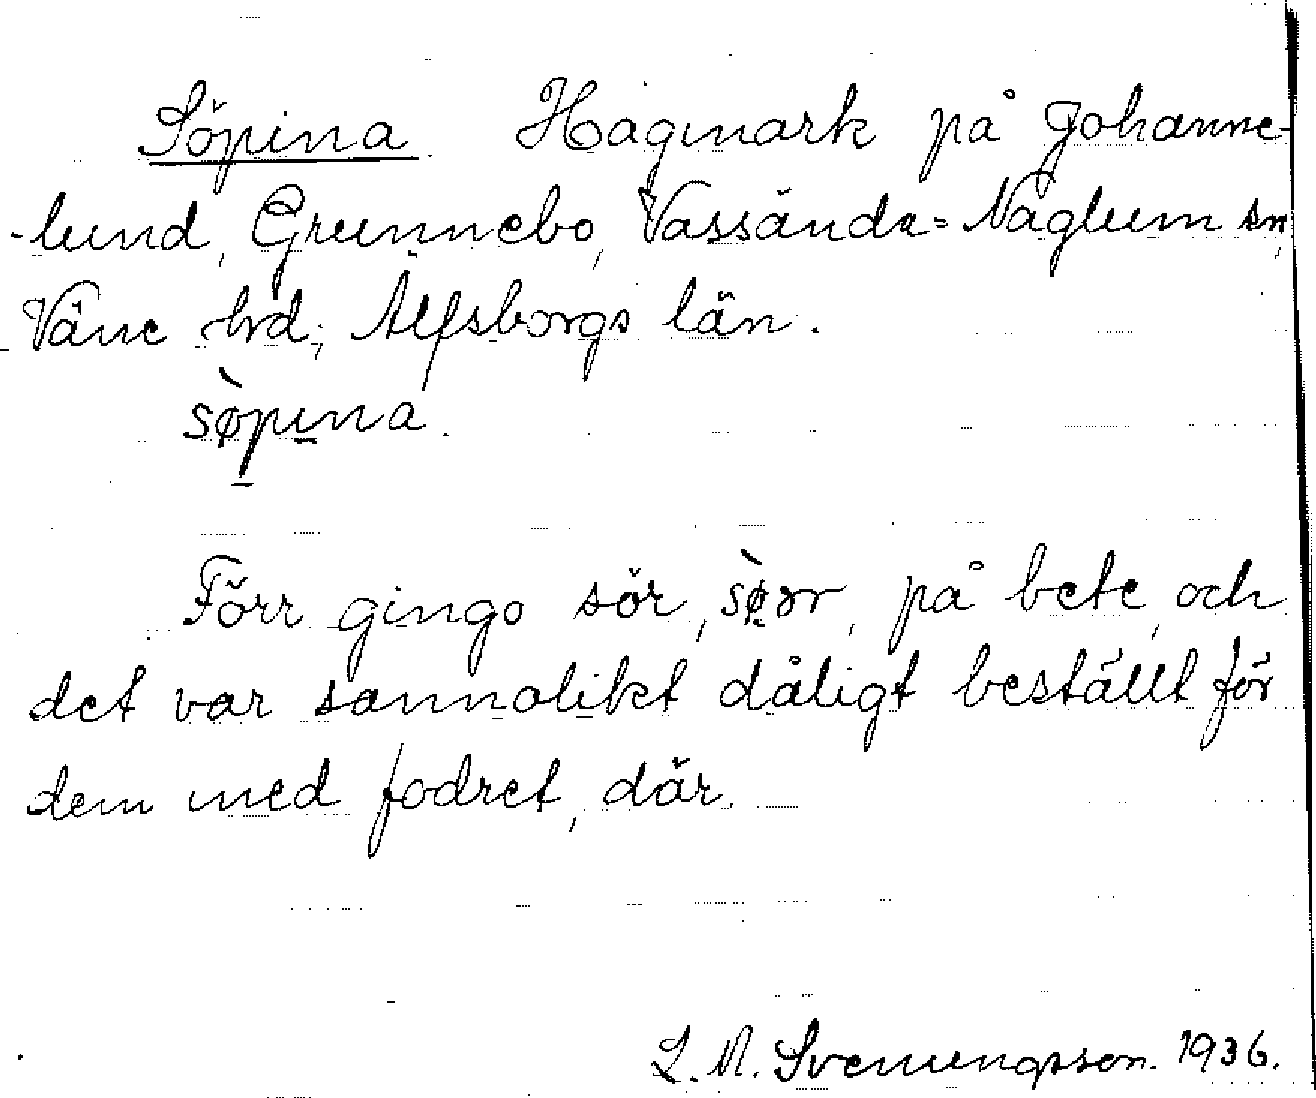 Söpina Hagmark på Johanne-
-lund, Grunnebo, Vassända=Naglum sn,
Väne hrd; Älfsborgs län.
sø̀pina.
Förr gingo sör, sø̀r, på bete, och
det var sannolikt dåligt beställt för
dem med fodret, där.
L. N. Svenungsson. 1936.